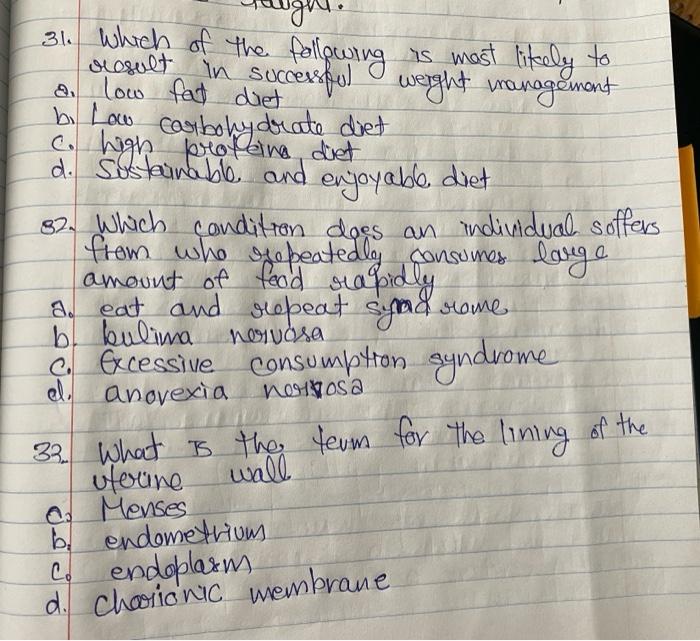 taught.
31. Which of the following is most likely to
result in successful weight management
a. low fat diet
b. Low carbohydrate diet
c. high proteins diet
d. Sustainable and enjoyable diet
32. Which condition does an individual soffers
from who repeatedly consumes large
amount of food rapidly
a. eat and repeat syndrome
b. bulima nervosa
c. Excessive consumption syndrome
d. anorexia nervosa
33. What is the term for the lining of the
uterine wall
a. Menses
b. endometrium
c. endoplasm
d. chorionic membrane